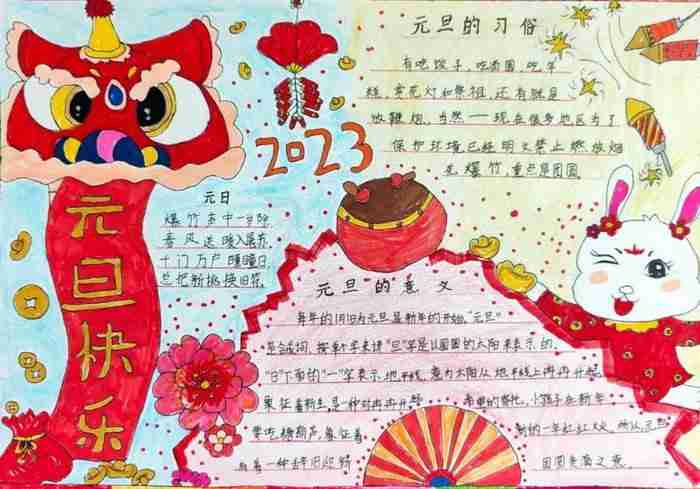 元旦快乐
2023
元旦的习俗
有吃饺子，吃汤圆，吃年
糕，赏花灯和祭祖，还有就是
放鞭炮，当然——现在很多地区为了
保护环境已经明文禁止燃放烟
花爆竹，重点是团圆
元日
爆竹声中一岁除
春风送暖入屠苏
千门万户曈曈日
总把新桃换旧符
元旦的意义
每年的1月1日为元旦是新年的开始"元旦"
是合成词，按单个字来讲"旦"字是以圆圆的太阳来表示的.
"日"下面的"一"字表示地平线，意为太阳从地平线上冉冉升起
象征着新生是一种对冉冉升
希望的寄托，小孩子在新年
要吃糖葫芦，象征着
新的一年红红火火，所以元旦
有着一种辞旧迎新
团圆美满之意.